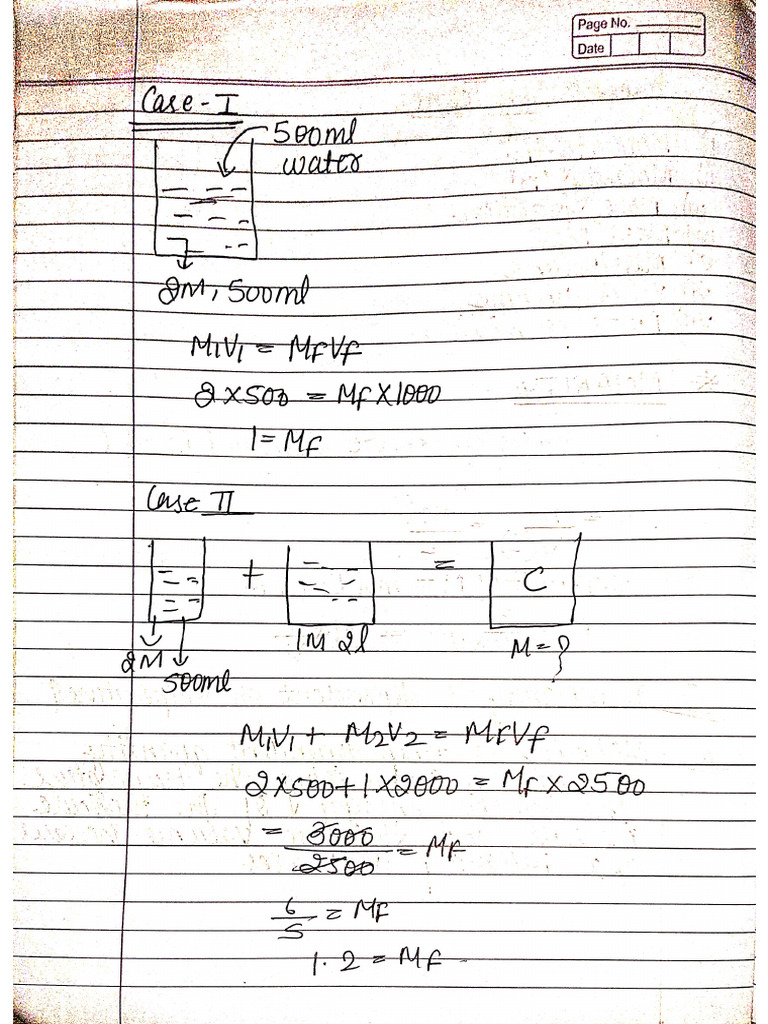 Page No.
Date
Case - I
500ml
water
2M, 500ml
M₁V₁ = MfVf
2 × 500 = Mf × 1000
1 = Mf
Case II
+ = C
2M 1M 2l M = ?
500ml
M₁V₁ + M₂V₂ = MfVf
2 × 500 + 1 × 2000 = Mf × 2500
= 3000/2500 = Mf
6/5 = Mf
1.2 = Mf